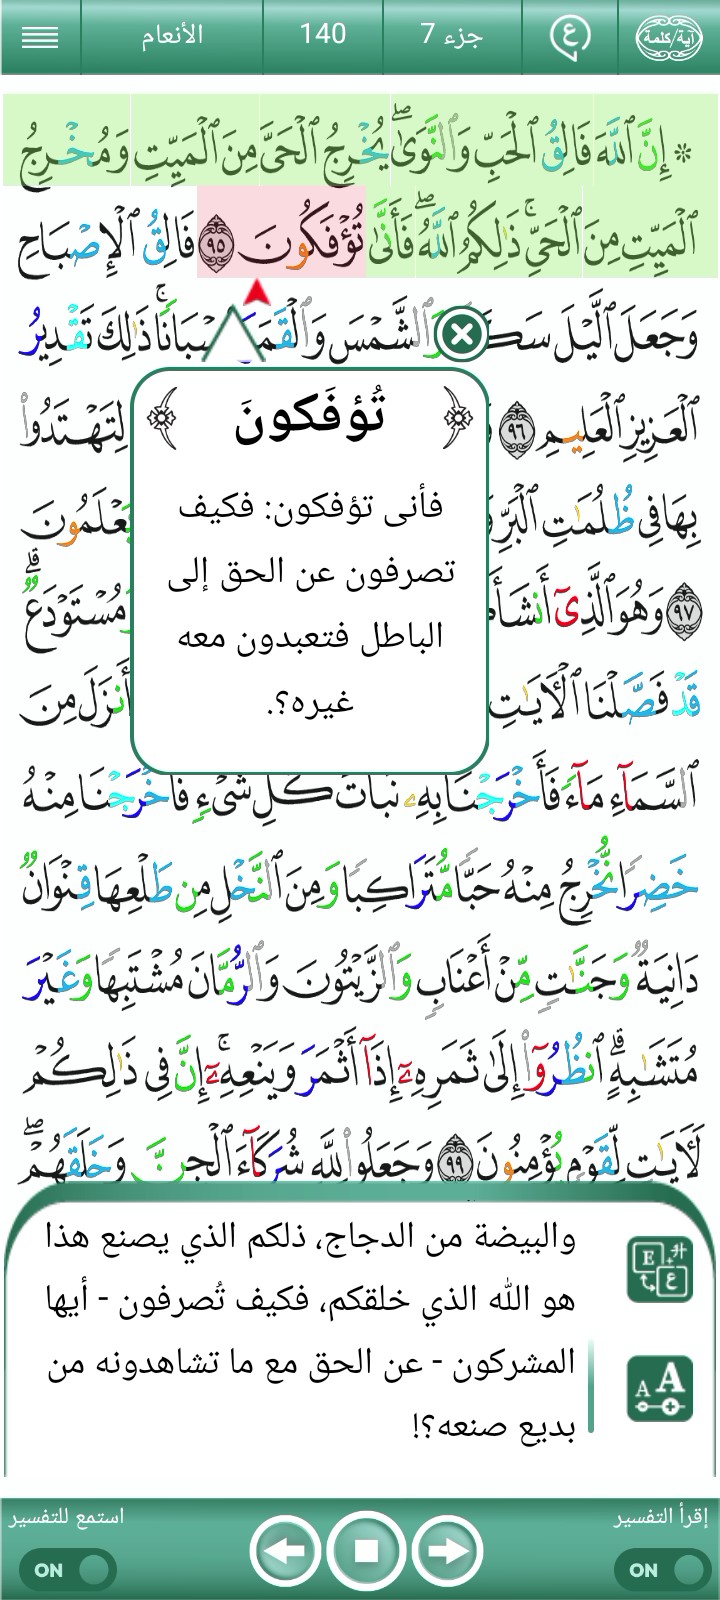 آية/كلمة
ع
جزء 7
140
الأنعام
۞ إِنَّ ٱللَّهَ فَالِقُ ٱلْحَبِّ وَٱلنَّوَىٰۖ يُخْرِجُ ٱلْحَىَّ مِنَ ٱلْمَيِّتِ وَمُخْرِجُ
ٱلْمَيِّتِ مِنَ ٱلْحَىِّۚ ذَٰلِكُمُ ٱللَّهُۖ فَأَنَّىٰ تُؤْفَكُونَ ٩٥ فَالِقُ ٱلْإِصْبَاحِ
وَجَعَلَ ٱلَّيْلَ وَٱلشَّمْسَ ذَٰلِكَ تَقْدِيرُ
ٱلْعَزِيزِ ٱلْعَلِيمِ ٩٦ لِتَهْتَدُوا۟
بِهَا فِى ظُلُمَٰتِ ٱلْبَرِّ
٩٧ وَهُوَ ٱلَّذِىٓ
قَدْ فَصَّلْنَا ٱلْءَايَٰتِ أَنزَلَ مِنَ
ٱلسَّمَآءِ مَآءً فَأَخْرَجْنَا بِهِۦ نَبَاتَ كُلِّ شَىْءٍ فَأَخْرَجْنَا مِنْهُ
خَضِرًا نُّخْرِجُ مِنْهُ حَبًّا مُّتَرَاكِبًا وَمِنَ ٱلنَّخْلِ مِن طَلْعِهَا قِنْوَانٌ
دَانِيَةٌ وَجَنَّٰتٍ مِّنْ أَعْنَابٍ وَٱلزَّيْتُونَ وَٱلرُّمَّانَ مُشْتَبِهًا وَغَيْرَ
مُتَشَٰبِهٍۗ ٱنظُرُوٓا۟ إِلَىٰ ثَمَرِهِۦٓ إِذَآ أَثْمَرَ وَيَنْعِهِۦٓۚ إِنَّ فِى ذَٰلِكُمْ
لَءَايَٰتٍ لِّقَوْمٍ يُؤْمِنُونَ ٩٩ وَجَعَلُوا۟ لِلَّهِ شُرَكَآءَ ٱلْجِنَّ وَخَلَقَهُمْۖ
تُؤفَكونَ
فأنى تؤفكون: فكيف
تصرفون عن الحق إلى
الباطل فتعبدون معه
غيره؟.
والبيضة من الدجاج، ذلكم الذي يصنع هذا
هو الله الذي خلقكم، فكيف تُصرفون - أيها
المشركون - عن الحق مع ما تشاهدونه من
بديع صنعه؟!
E ع
A A
إقرأ التفسير
استمع للتفسير
ON
ON